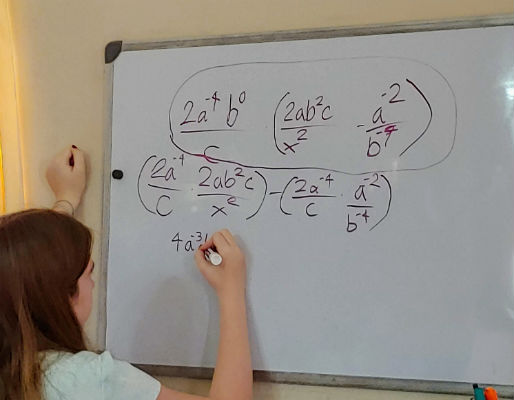 2a⁻⁴b⁰/c · (2ab²c/x² - a⁻²/b⁻⁴)
(2a⁻⁴/c · 2ab²c/x²) - (2a⁻⁴/c · a⁻²/b⁻⁴)
4a⁻³